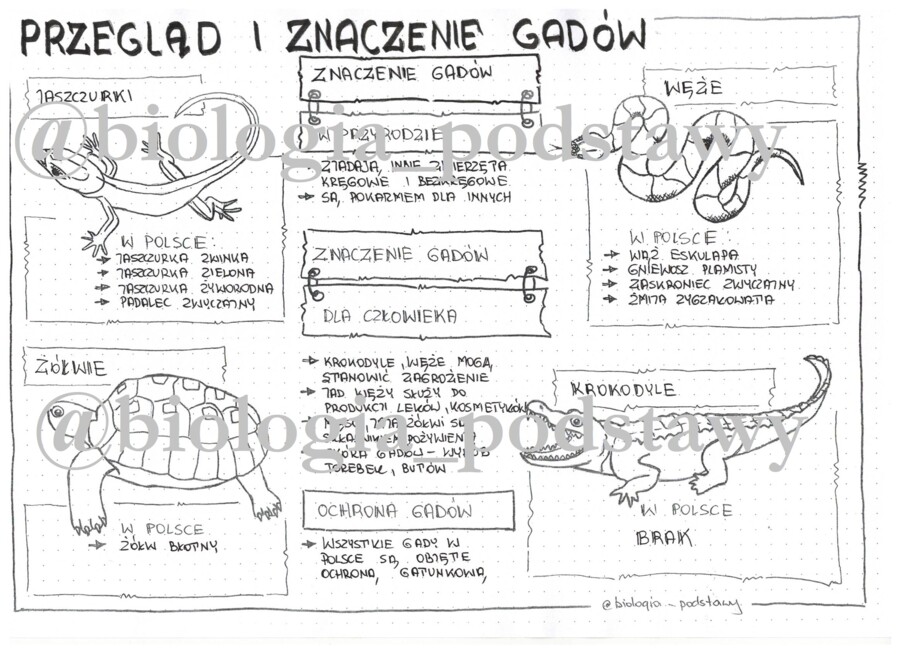 PRZEGLĄD I ZNACZENIE GADÓW
JASZCZURKI
W POLSCE:
JASZCZURKA ZWINKA
JASZCZURKA ZIELONA
JASZCZURKA ŻYWORODNA
PADALEC ZWYCZAJNY
ŻÓŁWIE
W POLSCE
ŻÓŁW BŁOTNY
ZNACZENIE GADÓW
W PRZYRODZIE
ZJADAJĄ INNE ZWIERZĘTA
KRĘGOWE I BEZKRĘGOWE
SĄ POKARMEM DLA INNYCH
ZNACZENIE GADÓW
DLA CZŁOWIEKA
KROKODYLE, WĘŻE MOGĄ
STANOWIĆ ZAGROŻENIE
JAD WĘŻY SŁUŻY DO
PRODUKCJI LEKÓW, KOSMETYKÓW
MIĘSO, JAJA ŻÓŁWI SĄ
SKŁADNIKIEM POŻYWIENIA
SKÓRA GADÓW - WYRÓB
TOREBEK, BUTÓW
OCHRONA GADÓW
WSZYSTKIE GADY W
POLSCE SĄ OBJĘTE
OCHRONĄ GATUNKOWĄ
WĘŻE
W POLSCE:
WĄŻ ESKULAPA
GNIEWOSZ PLAMISTY
ZASKRONIEC ZWYCZAJNY
ŻMIJA ZYGZAKOWATA
KROKODYLE
W POLSCE
BRAK
@biologia_podstawy
@biologia_podstawy
@biologia_podstawy